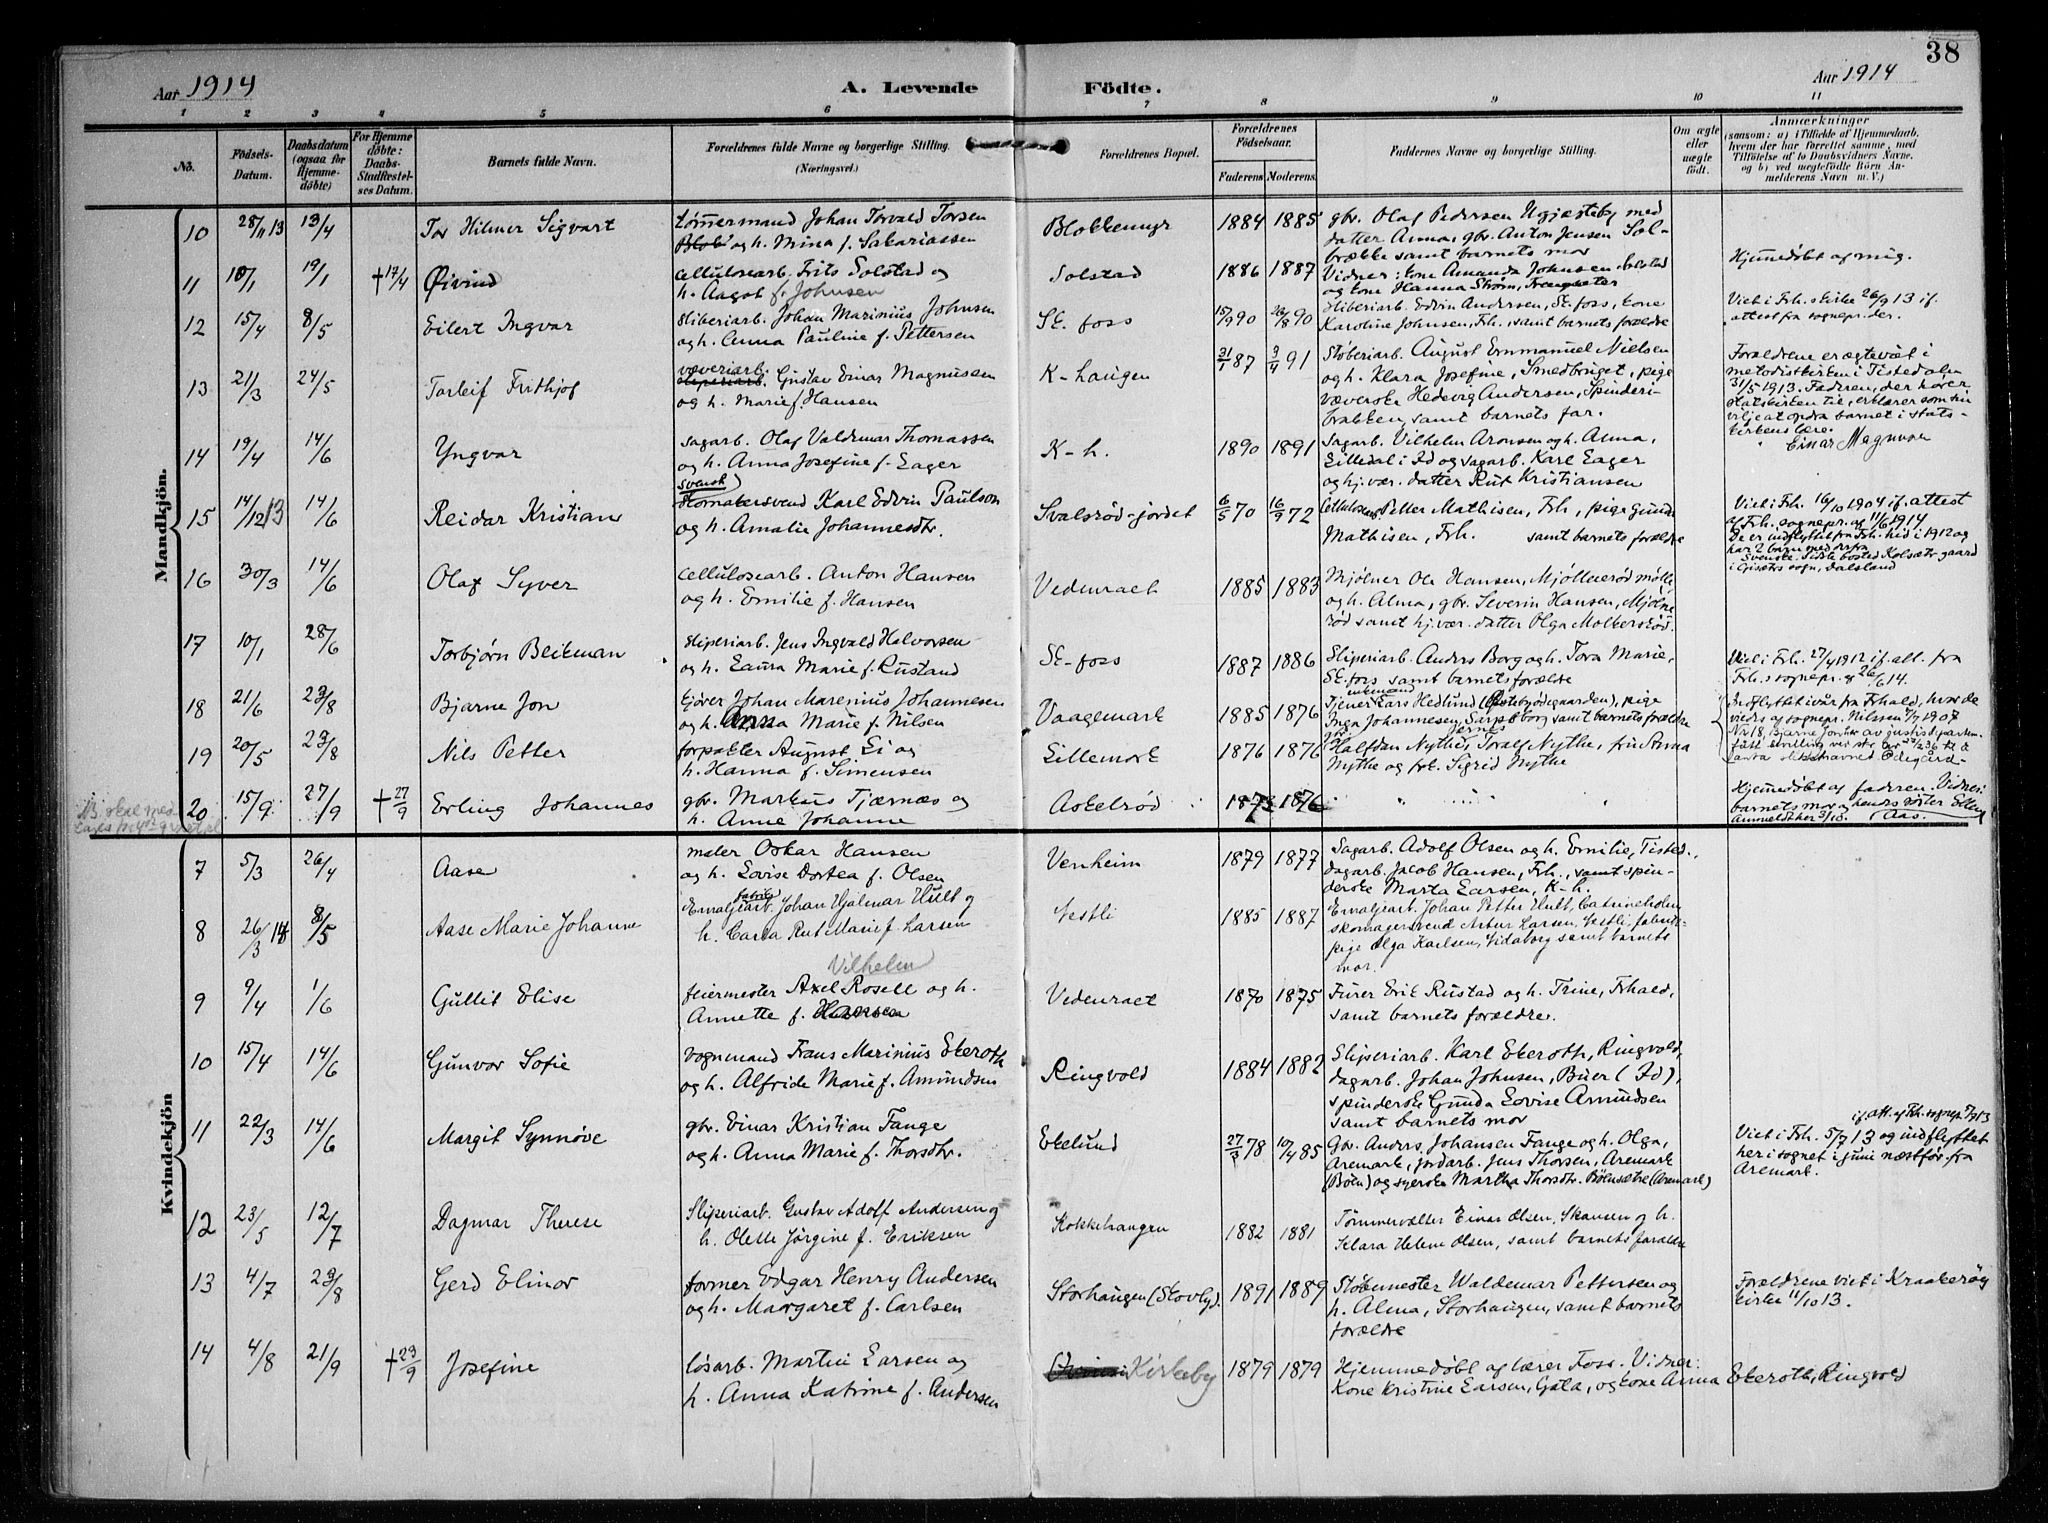 38
Aar 1914
A. Levende
Födte.
Aar 1914
1 2 3 4 5 6 7 8 9 10 11
No.
Födsels-
Datum.
Daabsdatum
(ogsaa for
Hjemme-
döbte)
For Hjemme
döbte:
Daabs-
Stadfæstel-
ses Datum.
Barnets fulde Navn.
Forældrenes fulde Navne og borgerlige Stilling.
(Næringsvei.)
Forældrenes Bopæl.
Forældrenes
Födselsaar.
Faderens. Moderens.
Faddernes Navne og borgerlige Stilling.
Om ægte
eller
uægte
födt.
Anmærkninger
(saasom: a) i Tilfælde af Hjemmedaab,
hvem der har forrettet samme, med
Tilföielse af to Daabsvidners Navne.
og b) ved uægtefödte Börn An-
melderens Navn m. V.)
Mandkjön.
10 28/11 13 13/4 Tor Hilmer Sigvart
Tømmermand Johan Torvald Torsen
og h. Mina f. Sakariassen
Blokkemyr 1884 1885
gbr. Olaf Pedersen Ugjæsteby med
datter Anna, gbr. Anton Jensen Sol-
brække samt barnets mor
11 10/1 19/1 †17/4 Øivind
Cellulosearb. Frits Solstad og
h. Aagot f. Johnsen
Solstad 1886 1887
Vidner: kone Amanda Johnsen Solstad
og kone Hanna Strøm,
Hjemedøbt af mig.
12 15/4 8/5 Eilert Ingvar
Sliberiarb. Johan Marinius Johnsen
og h. Anna Pauline f. Pettersen
Sk. foss 15/9 90 26/8 90
Sliberiarb. Edvin Andersen, Sk. foss, kone
Karoline Johnsen, Frh., samt barnets forældre
Viet i Frh.s kirke 26/9 13 if.
attest fra sognepr. der.
13 21/3 24/5 Torleif Frithjof
væveriarb.
sliperiarb. Gustav Einar Magnusen
og h. Marie f. Hansen
K-haugen 31/1 87 3/4 91
Støberiarb. August Emmanuel Nielsen
og h. Klara Josefine, Smedbruget, pige
væverske Hedevig Andersen, Spinderi-
brakken, samt barnets far.
Forældrene er ægteviet i
metodistkirken i Tistedalen
31/5 1913. Faderen, der hører
statskirken til, erklærer som sin
vilje at opdra barnet i stats-
kirkens lære.
Einar Magnusen
14 19/4 14/6 Yngvar
sagarb. Olaf Valdemar Thomassen
og h. Anna Josefine f. Lager
K-h. 1890 1891
Sagarb. Vilhelm Aronsen og h. Anna,
Lilledal i Id og sagarb. Karl Lager
og hj.vær. datter Rut Kristiansen
15 14/12 13 14/6 Reidar Kristian
svensk
Skomakersvend Karl Edvin Paulson
og h. Amalie Johannesdtr.
Svalerød-jordet 6/5 70 16/9 72
Cellulosearb. Petter Mathisen, Frh., pige Gunda
Mathisen, Frh. samt barnets forældre
Viet i Frh. 16/10 1904 if. attest
af Frh. sognepr. af 11/6 1914
De er indflyttet fra Frh. hid i 1912 og
har 2 barn med
Svenske. Sidste bosted Kolsæter gaard
i sogn, Dalsland
16 30/3 14/6 Olaf Syver
Cellulosearb. Anton Hansen
og h. Emilie f. Hansen
Vedenraet 1885 1883
Mjølner Ole Hansen, Mjøllnerød mølle
og h. Alma, gbr. Severin Hansen, Mjølne-
rød samt hj.vær. datter Olga Molkersrød.
17 10/1 28/6 Torbjørn Bleikman
Sliperiarb. Jens Ingvald Halvorsen
og h. Laura Marie f. Rustand
Sk-foss 1887 1886
Sliperiarb. Andrs Borg og h. Tora Marie,
Sk. foss samt barnets forældre
Viet i Frh. 27/4 1912 if. att. fra
Frh.s sognepr. 26/6 14.
18 21/6 23/8 Bjarne Jon
kjører Johan Marenius Johannesen
og h. Anna Marie f. Nilsen
Vaagemark 1885 1876
Tjener Lars Hedlund (Østbrødegaarden), pige
Inga Johannesen, Sarpsborg samt barnets forældre
Indflyttet ivår fra Frhald, hvor de
viedes af sognepr. Nilssen 1907
19 20/5 23/8 Nils Petter
forpakter August Li og
h. Hanna f. Simensen
Lillemork 1876 1876
Halfdan Nythe, Toralf Nythe, fru Anna
Nythe og frk. Sigrid Nythe
20 15/9 27/9 †27/9 Erling Johannes
gbr. Markus Tjærnæs og
h. Anne Johanne
Askelrød 1873 1876
Hjemmedøbt af faderen. Vidner:
barnets mor og hendes søster Ellen
Anmeldt her 3/10. Aas.
Kvindekjön
7 5/3 26/4 Aase
maler Oskar Hansen
og h. Lovise Dortea f. Olsen
Venheim 1879 1877
Sagarb. Adolf Olsen og h. Emilie, Tisted.,
dagarb. Jacob Hansen, Frh., samt spin-
derske Marta Larsen, K-h.
8 26/3 14 8/5 Aase Marie Johanne
fabrik
Emaljearb. Johan Hjalmar Hult og
h. Carla Rut Marie f. Larsen
Vestli 1885 1887
Emaljearb. Johan Petter Hult, Catrineholm
skomagersvend Artur Larsen, Vestli, fabrik-
pige Olga Karlsen, Vidaborg samt barnets
mor.
9 9/4 1/6 Gullit Elise
Vilhelm
feiermester Axel Rosell og h.
Annette f. Hansen
Vedenraet 1870 1875
Furer Erik Rustad og h. Trine, Frhald,
samt barnets forældre.
10 15/4 14/6 Gunvor Sofie
vognmand Frans Marinius Ekeroth
og h. Alfride Marie f. Amundsen
Ringvold 1884 1882
Sliperiarb. Karl Ekeroth, Ringvold,
dagarb. Johan Johnsen, Buer (Id),
spinderske Gunda Lovise Amundsen
samt barnets mor
11 22/3 14/6 Margit Synnøve
gbr. Einar Kristian Tange
og h. Anna Marie f. Thorsdtr.
Ekelund 27/3 78 10/4 85
Gbr. Anders Johansen Tange og h. Olga,
Aremark, jordarb. Jens Thorsen, Aremark
(Bøen) og syerske Martha Thorsdtr. Bøensætre (Aremark)
if. att. af Frh. sognep. 7/7 13
Viet i Frh. 5/7 13 og indflyttet
her i sognet i juni næstfør. fra
Aremark.
12 23/5 12/7 Dagmar Therese
Sliperiarb. Gustav Adolf Andersen og
h. Olette Jørgine f. Eriksen
Kokkehaugen 1882 1881
Tømmervælter Einar Olsen, Skansen og h.
Klara Helene Olsen, samt barnets forældre
13 4/7 23/8 Gerd Elinor
former Edgar Henry Andersen
og h. Margaret f. Carlsen
Storhaugen (Skovly). 1891 1889
Støbemester Waldemar Pettersen og
h. Alma, Storhaugen, samt barnets
forældre
Forældrene viet i Kraakerøy
kirke 11/10 13.
14 4/8 21/9 †29/9 Josefine
løsarb. Martin Larsen og
h. Anna Katrine f. Andersen
Kirkeby 1879 1879
Hjemmedøbt af lærer Foss. Vidner:
Kone Kristine Larsen, Gata, og kone Anna Ekeroth, Ringvold